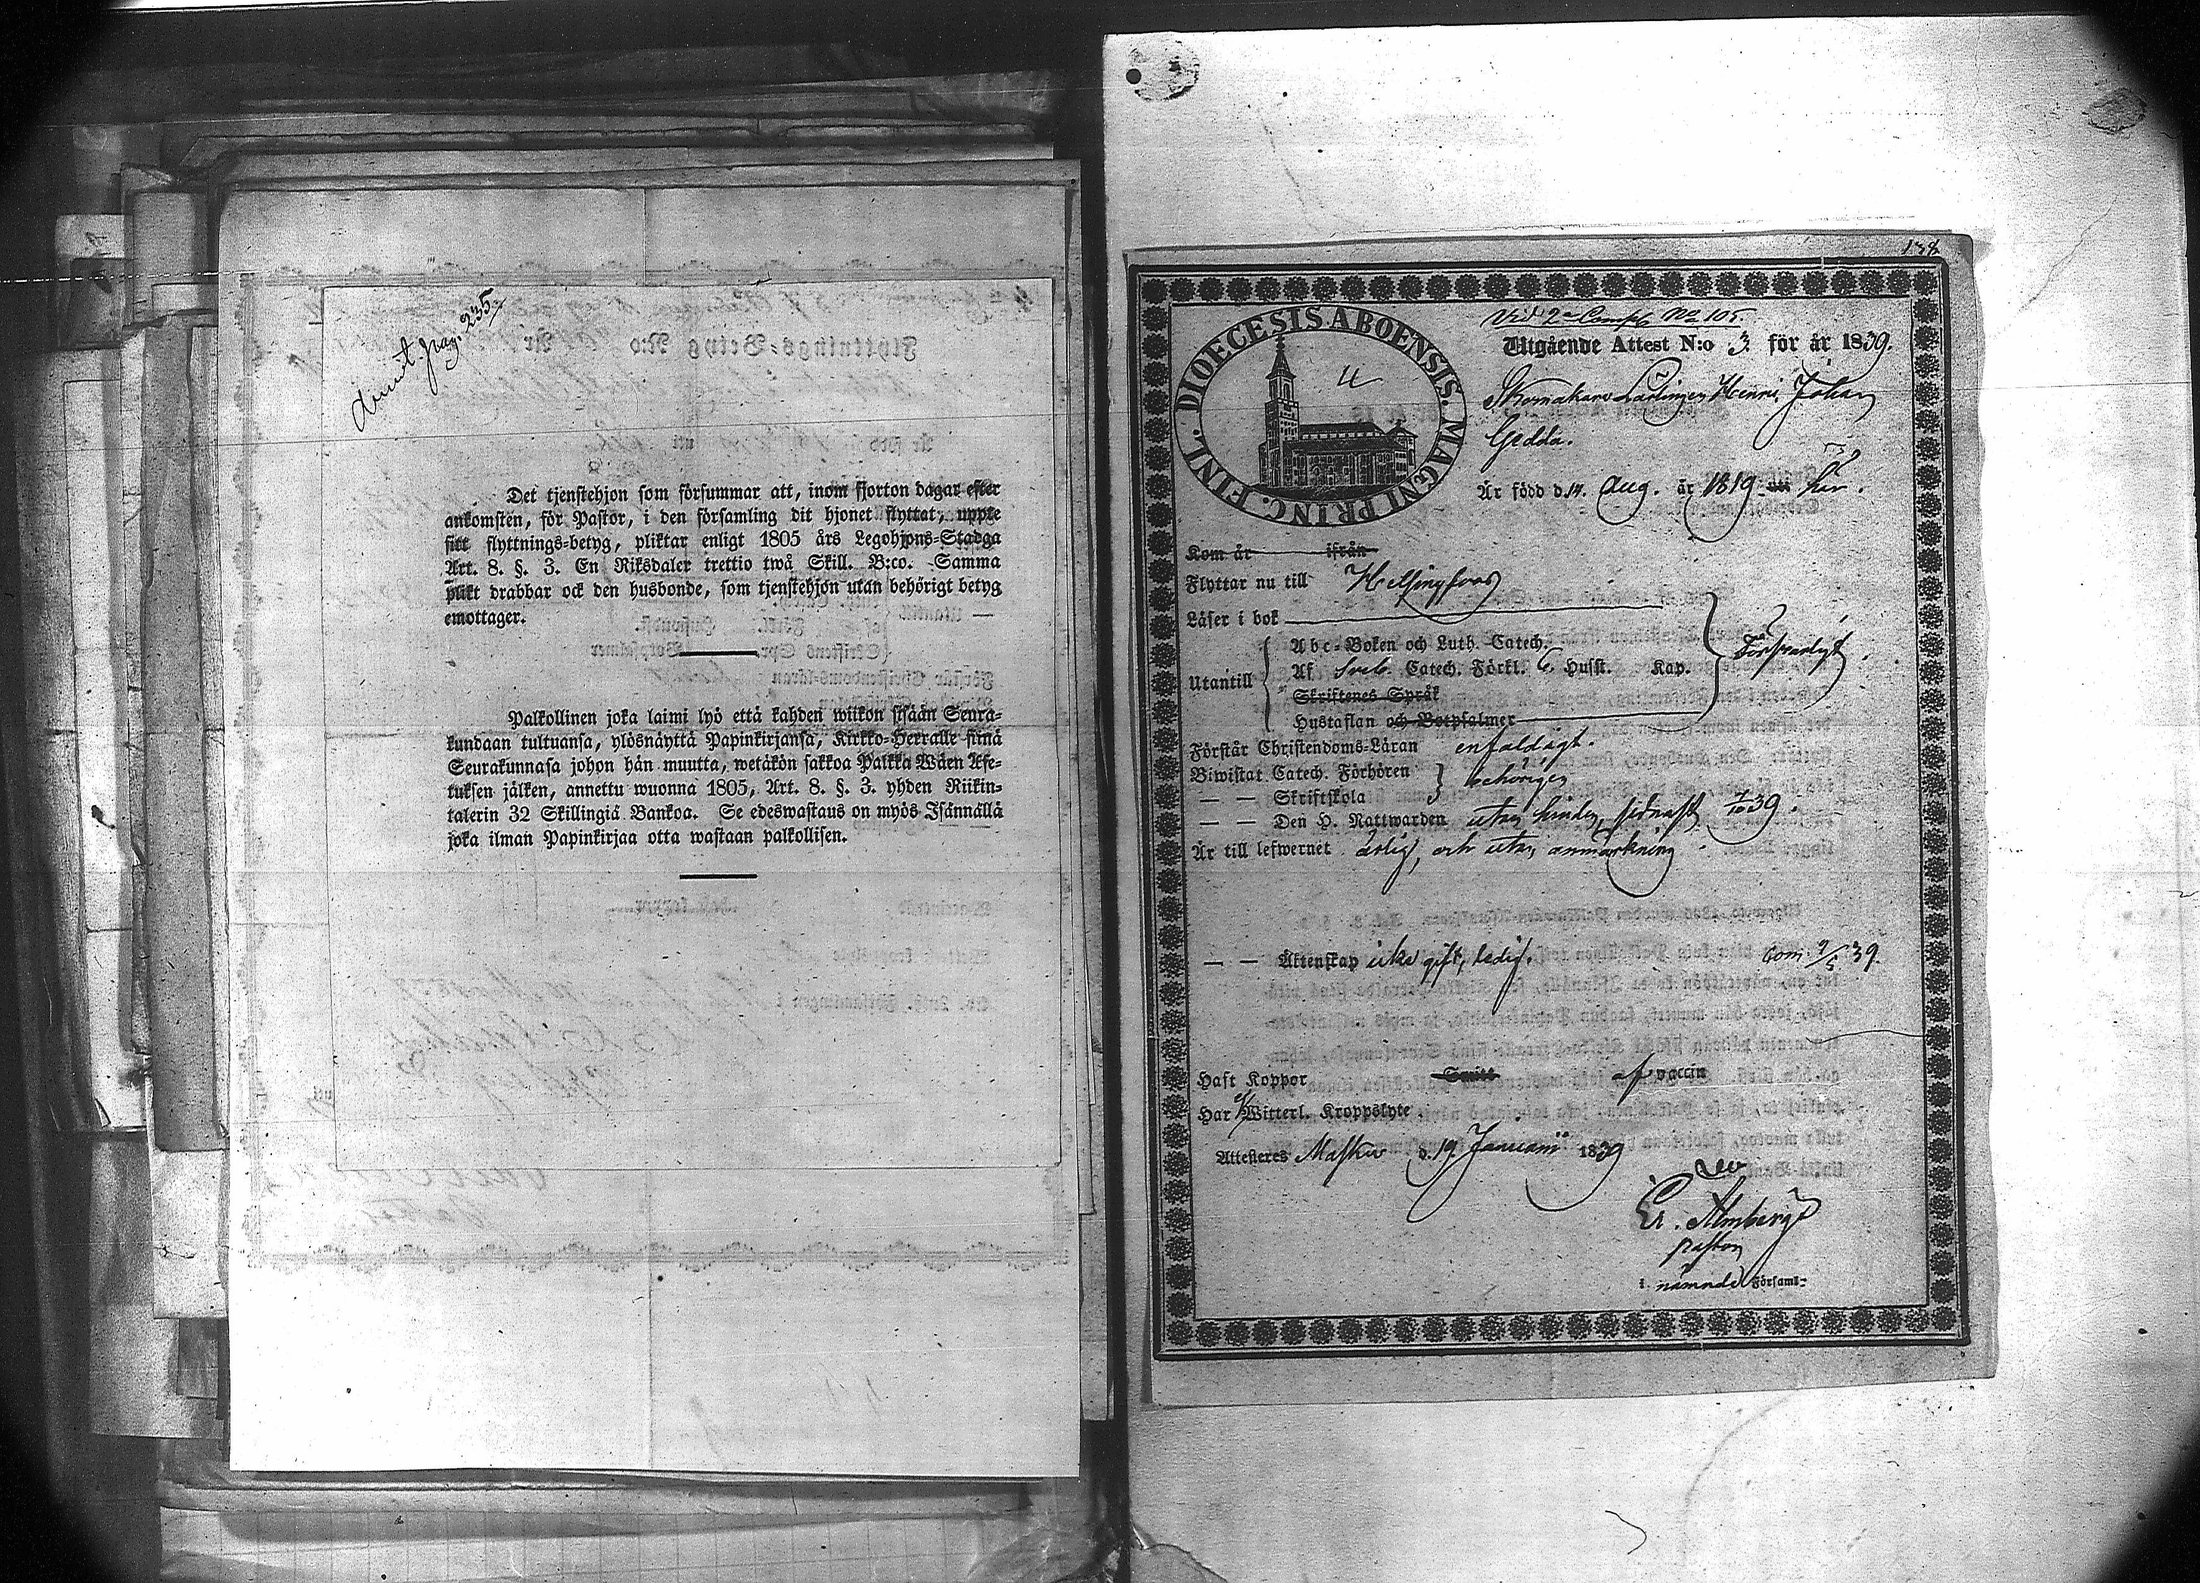 pag. 235.
Det tjenstehjon som försummar att, inom fjorton dagar efter
ankomsten, för Pastor, i den församling dit hjonet flyttat, uppte
sitt flyttnings-betyg, pliktar enligt 1805 års Legohjons-Stadga
Art. 8. §. 3. En Riksdaler trettio twå Skill. B:co. Samma
plikt drabbar ock den husbonde, som tjenstehjon utan behörigt betyg
emottager.
Palkollinen joka laimi lyö että kahden wiikon sisään Seura-
kundaan tultuansa, ylösnäyttä Papinkirjansa, Kirkko-Herralle siinä
Seurakunnasa johon hän muutta, wetäkön sakkoa Palkka Wäen Ase-
tuksen jälken, annettu wuonna 1805, Art. 8. §. 3. yhden Riikin-
talerin 32 Skillingiä Bankoa. Se edeswastaus on myös Isännällä
joka ilman Papinkirjaa otta wastaan palkollisen.
138
DIOECESIS ABOENSIS. MAGNI PRINC. FINL.
Vid 2a Comp. No 105
Utgående Attest N:o 3. för år 1839.
Skomakare Lärlingen Henric Johan
Gedda.
Är född d. 14. Aug. år 1819 uti här.
Kom år ifrån
Flyttar nu till Helsingfors
Läser i bok
Försvarligt.
Abc-Boken och Luth. Catech.
Utantill Af Sveb. Catech. Förkl. 6 Huſst. Kap.
Skriftenes Språk
Hustaflan och Botpsalmer
Förstår Christendoms-Läran enfaldigt.
Biwistat Catech. Förhören behörigen
— — Skriftskola
— — Den H. Nattwarden utan hinder, sednast 7/10 39.
Är till lefwernet ärlig, och utan anmärkning.
— — Äktenskap icke gift, ledig. Com. 9/5 39.
Haft Koppor Smitt af vaccin
Har ej Witterl. Kroppslyte
Attesteres Masku d. 19. Januarii 1839
Er. Almberg
pastor
i nämnde Församl-